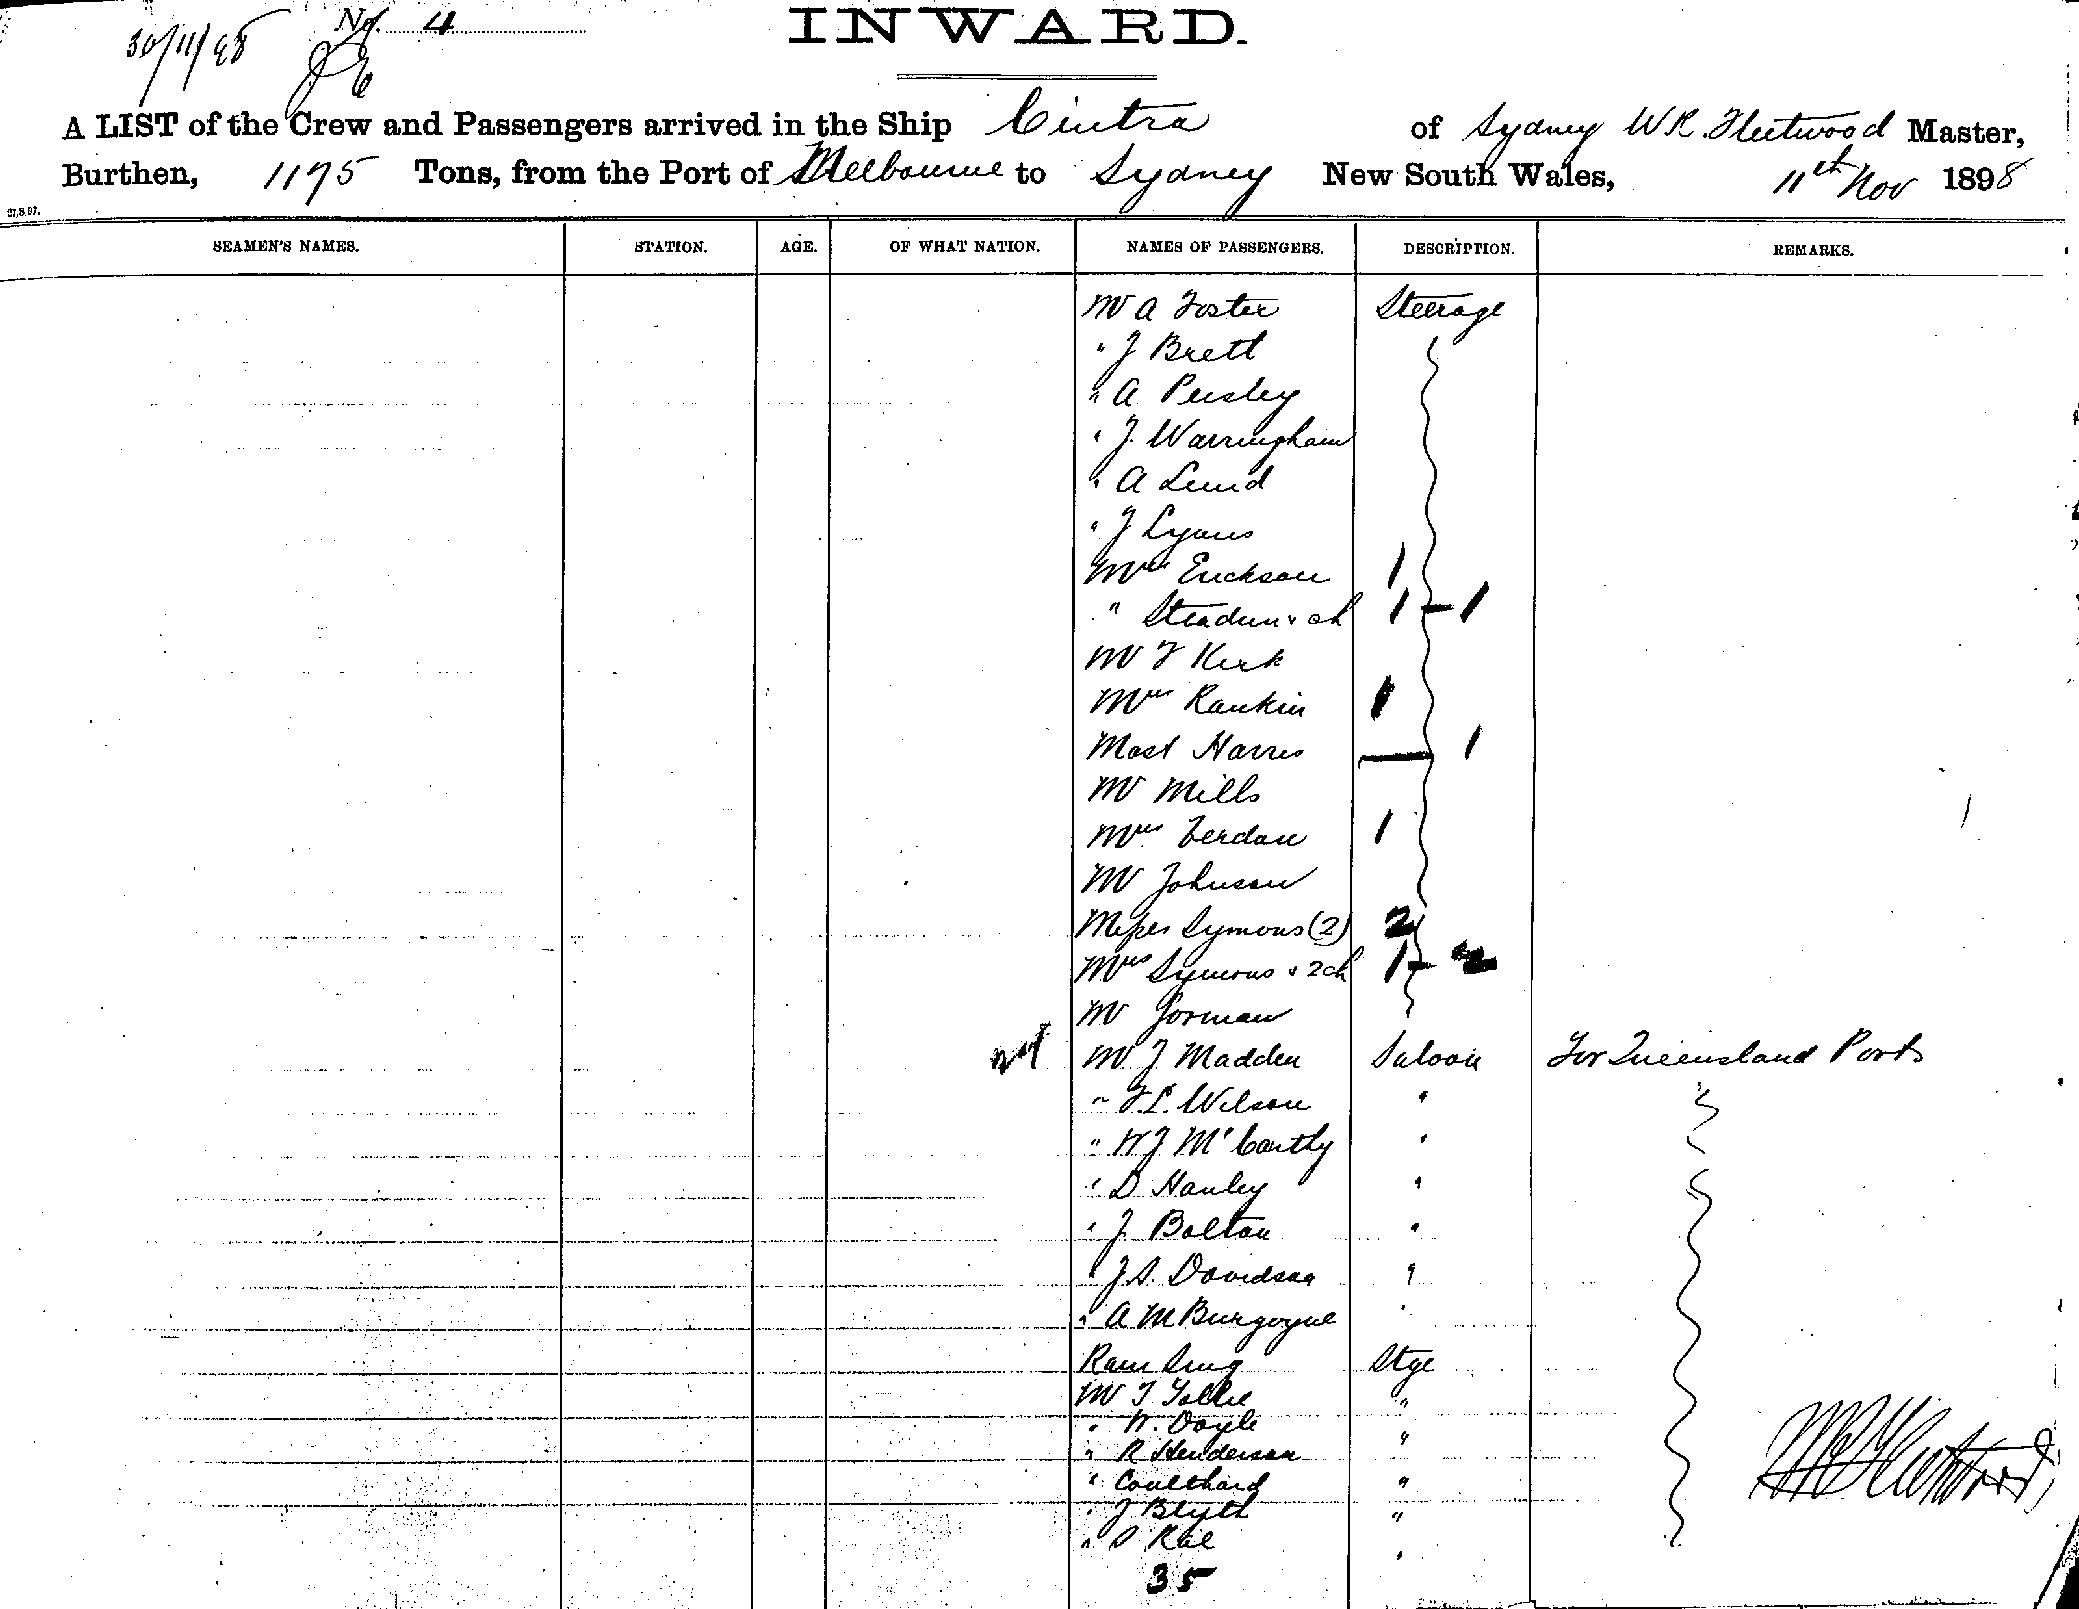 30/11/98 No. 4
INWARD.
A LIST of the Crew and Passengers arrived in the Ship Cintra of Sydney W R Fleetwood Master,
Burthen, 1195 Tons, from the Port of Melbourne to Sydney New South Wales, 11th Nov 1898
27.8.97.
SEAMEN'S NAMES. STATION. AGE. OF WHAT NATION. NAMES OF PASSENGERS. DESCRIPTION. REMARKS.
Mr A Foster Steerage
" J Brett
" A Peisley
" J. Warringham
" A Lund
" J Lyons
Mrs Erickson 1
" Steadun & ch 1 - 1
Mr F Kirk
Mrs Rankin 1
Mast Harris — 1
Mr Mills
Mrs Verdau 1
Mr Johnson
Misses Symons (2) 2
Mrs Symons & 2 ch 1 - 2
Mr Gorman
Mr J Madden Saloon For Queensland Ports
" F.L. Wilson "
" W J McCarthy "
" D Hanley "
" J. Bolton "
" J.S. Davidson "
" A M Burgoyne "
Ram Sing Stge
Mr T "
" W. Doyle
" R Henderson "
" Coulthard "
" J Blyth "
" S Rae "
35